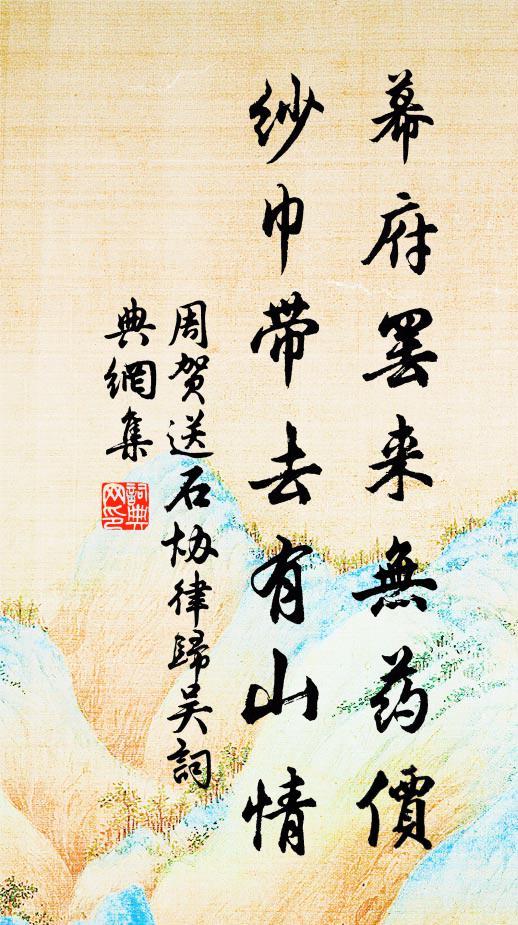 幕府罢来無药價
纱巾带去有山情
周贺送石协律歸吴詞
典網集
詞典网印